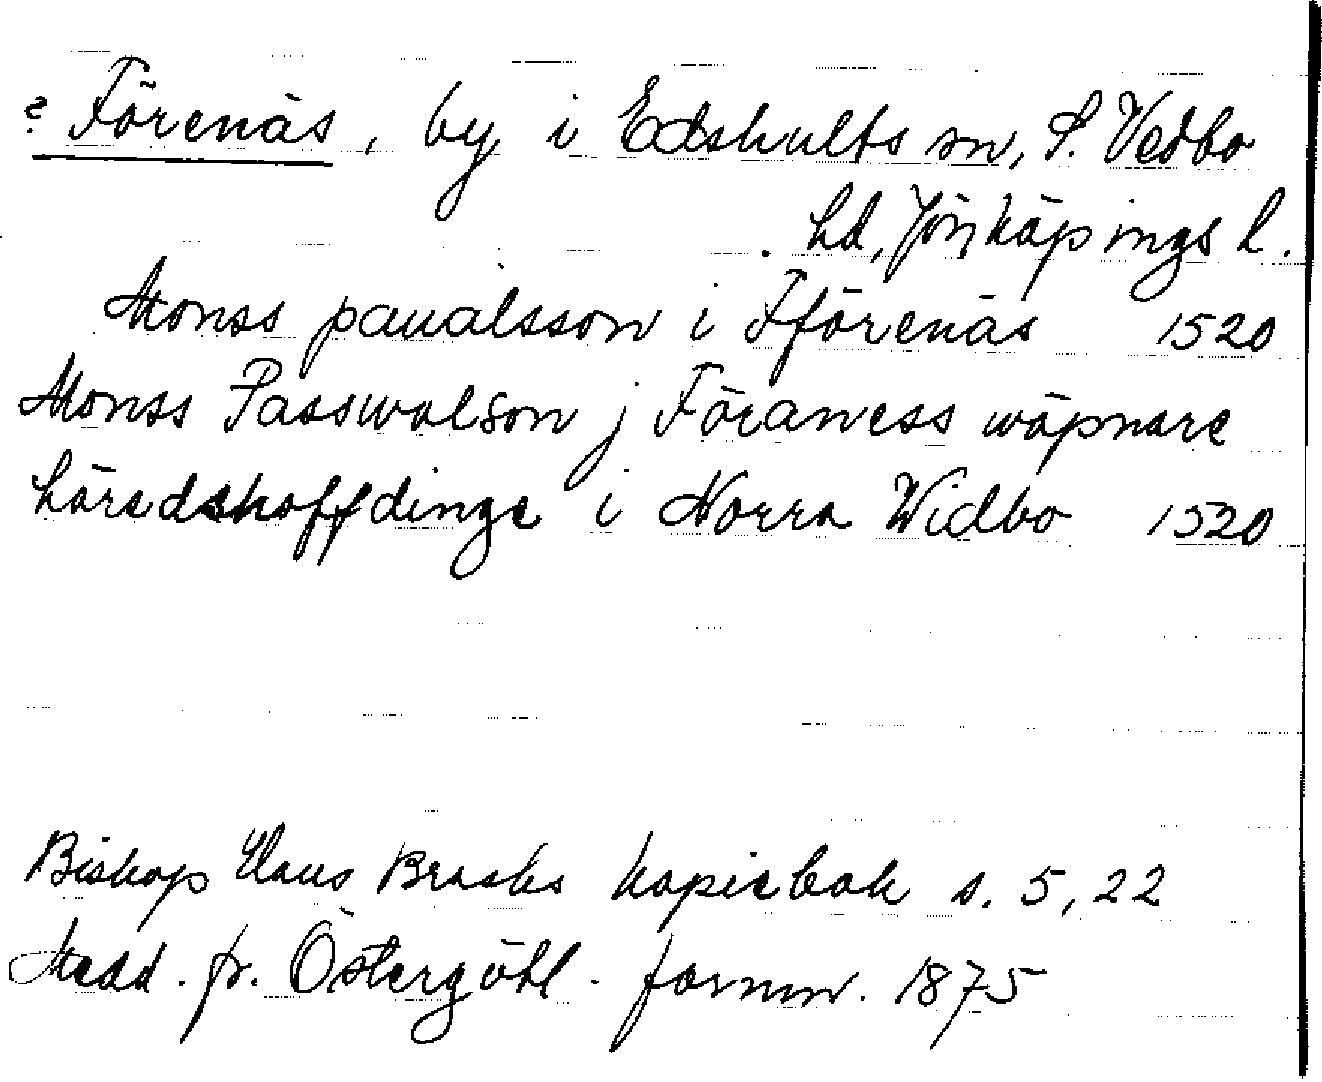 ? Förenäs, by i Edshults sn, S. Vedbo
hd, Jönköpings l.
Monss paualsson i Fförenäs 1520
Monss Passwalson j Föraness wäpnare
häredshoffdinge i Norra Widbo 1520
Biskop Hans Brasks kopiebok s. 5, 22
Medd. fr. Östergötl. fornm. 1875